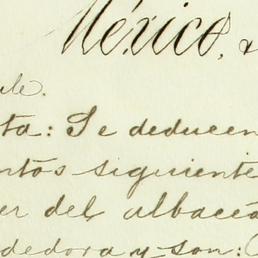 México,
le.
ta: Se deducen
ntos siguiente
er del albacea
dedora y son: